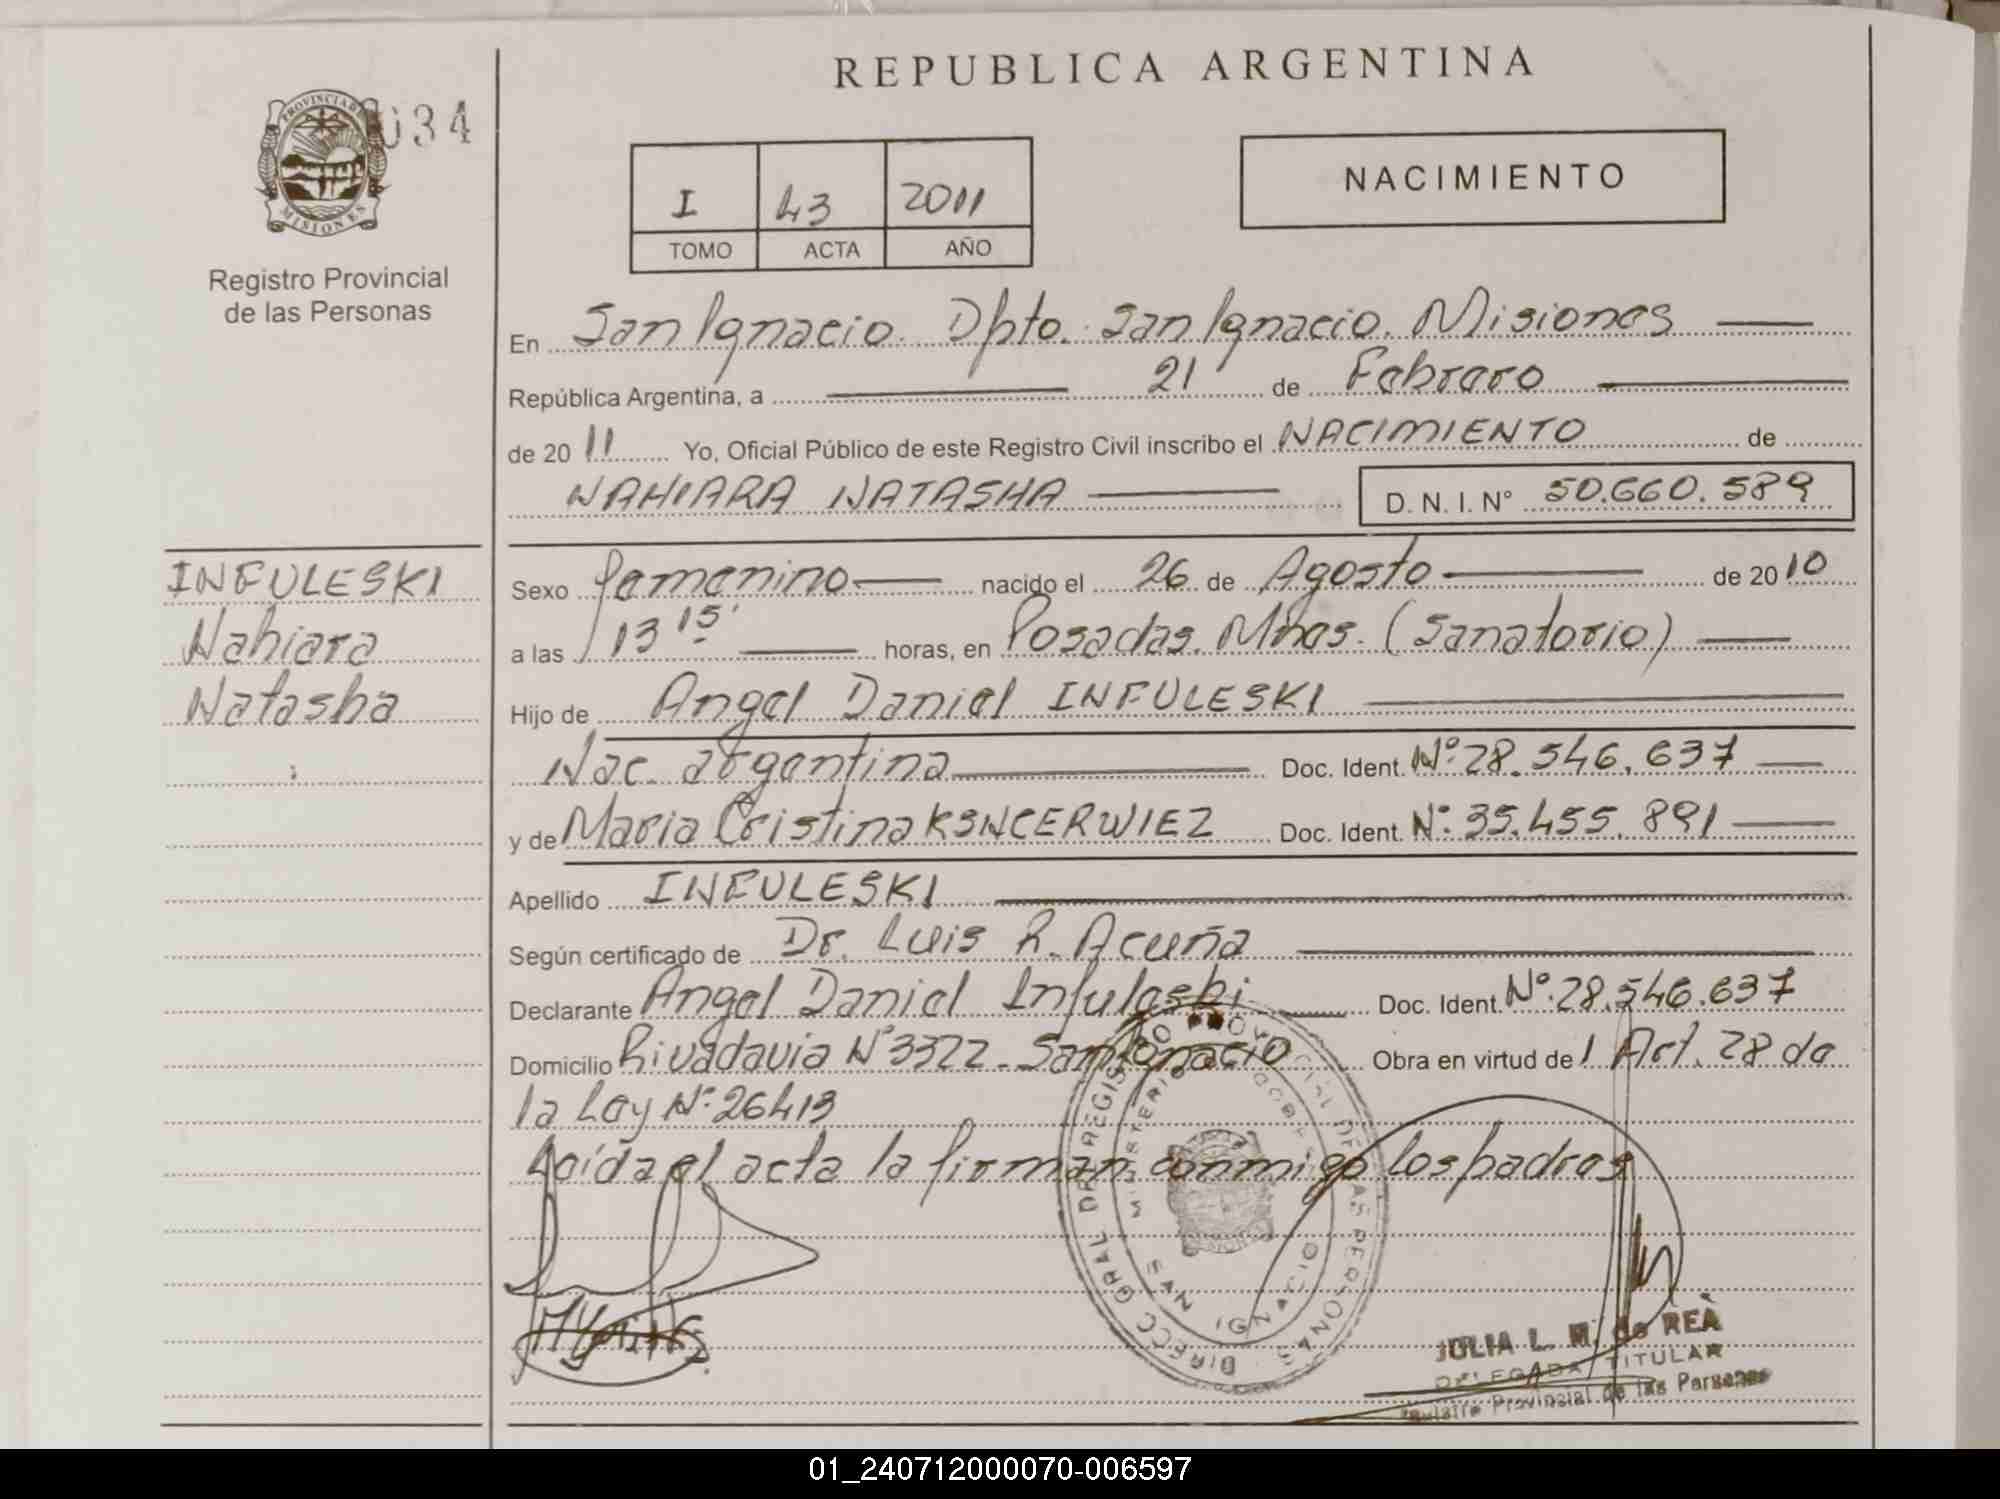 REPUBLICA ARGENTINA
034
PROVINCIA DE
MISIONES
Registro Provincial
de las Personas
I 43 2011
TOMO ACTA AÑO
NACIMIENTO
En San Ignacio. Dpto. San Ignacio. Misiones
República Argentina, a 21 de Febrero
de 2011 Yo, Oficial Público de este Registro Civil inscribo el NACIMIENTO de
NAHIARA NATASHA D. N. I. N° 50.660.589
INFULESKI
Nahiara
Natasha
Sexo femenino nacido el 26 de Agosto de 2010
a las 13 15' horas, en Posadas. Mnes. (Sanatorio)
Hijo de Angel Daniel INFULESKI
Nac. argentina Doc. Ident. N°:28.546.637
y de Maria Cristina KSNCERWIEZ Doc. Ident. N°: 35.455.891
Apellido INFULESKI
Según certificado de Dr. Luis R. Acuña
Declarante Angel Daniel Infuleski Doc. Ident. N°:28.546.637
Domicilio Rivadavia N°3322 - San Ignacio Obra en virtud del Art. 28 de
la Ley N°:26413
Leída el acta la firman conmigo los padres
DIRECC GRAL DE REGISTRO PROVINCIAL DE LAS PERSONAS
MINISTERIO DE GOBIERNO
SAN IGNACIO
JULIA L. M. de REA
DELEGADA TITULAR
Registro Provincial de las Personas
01_240712000070-006597